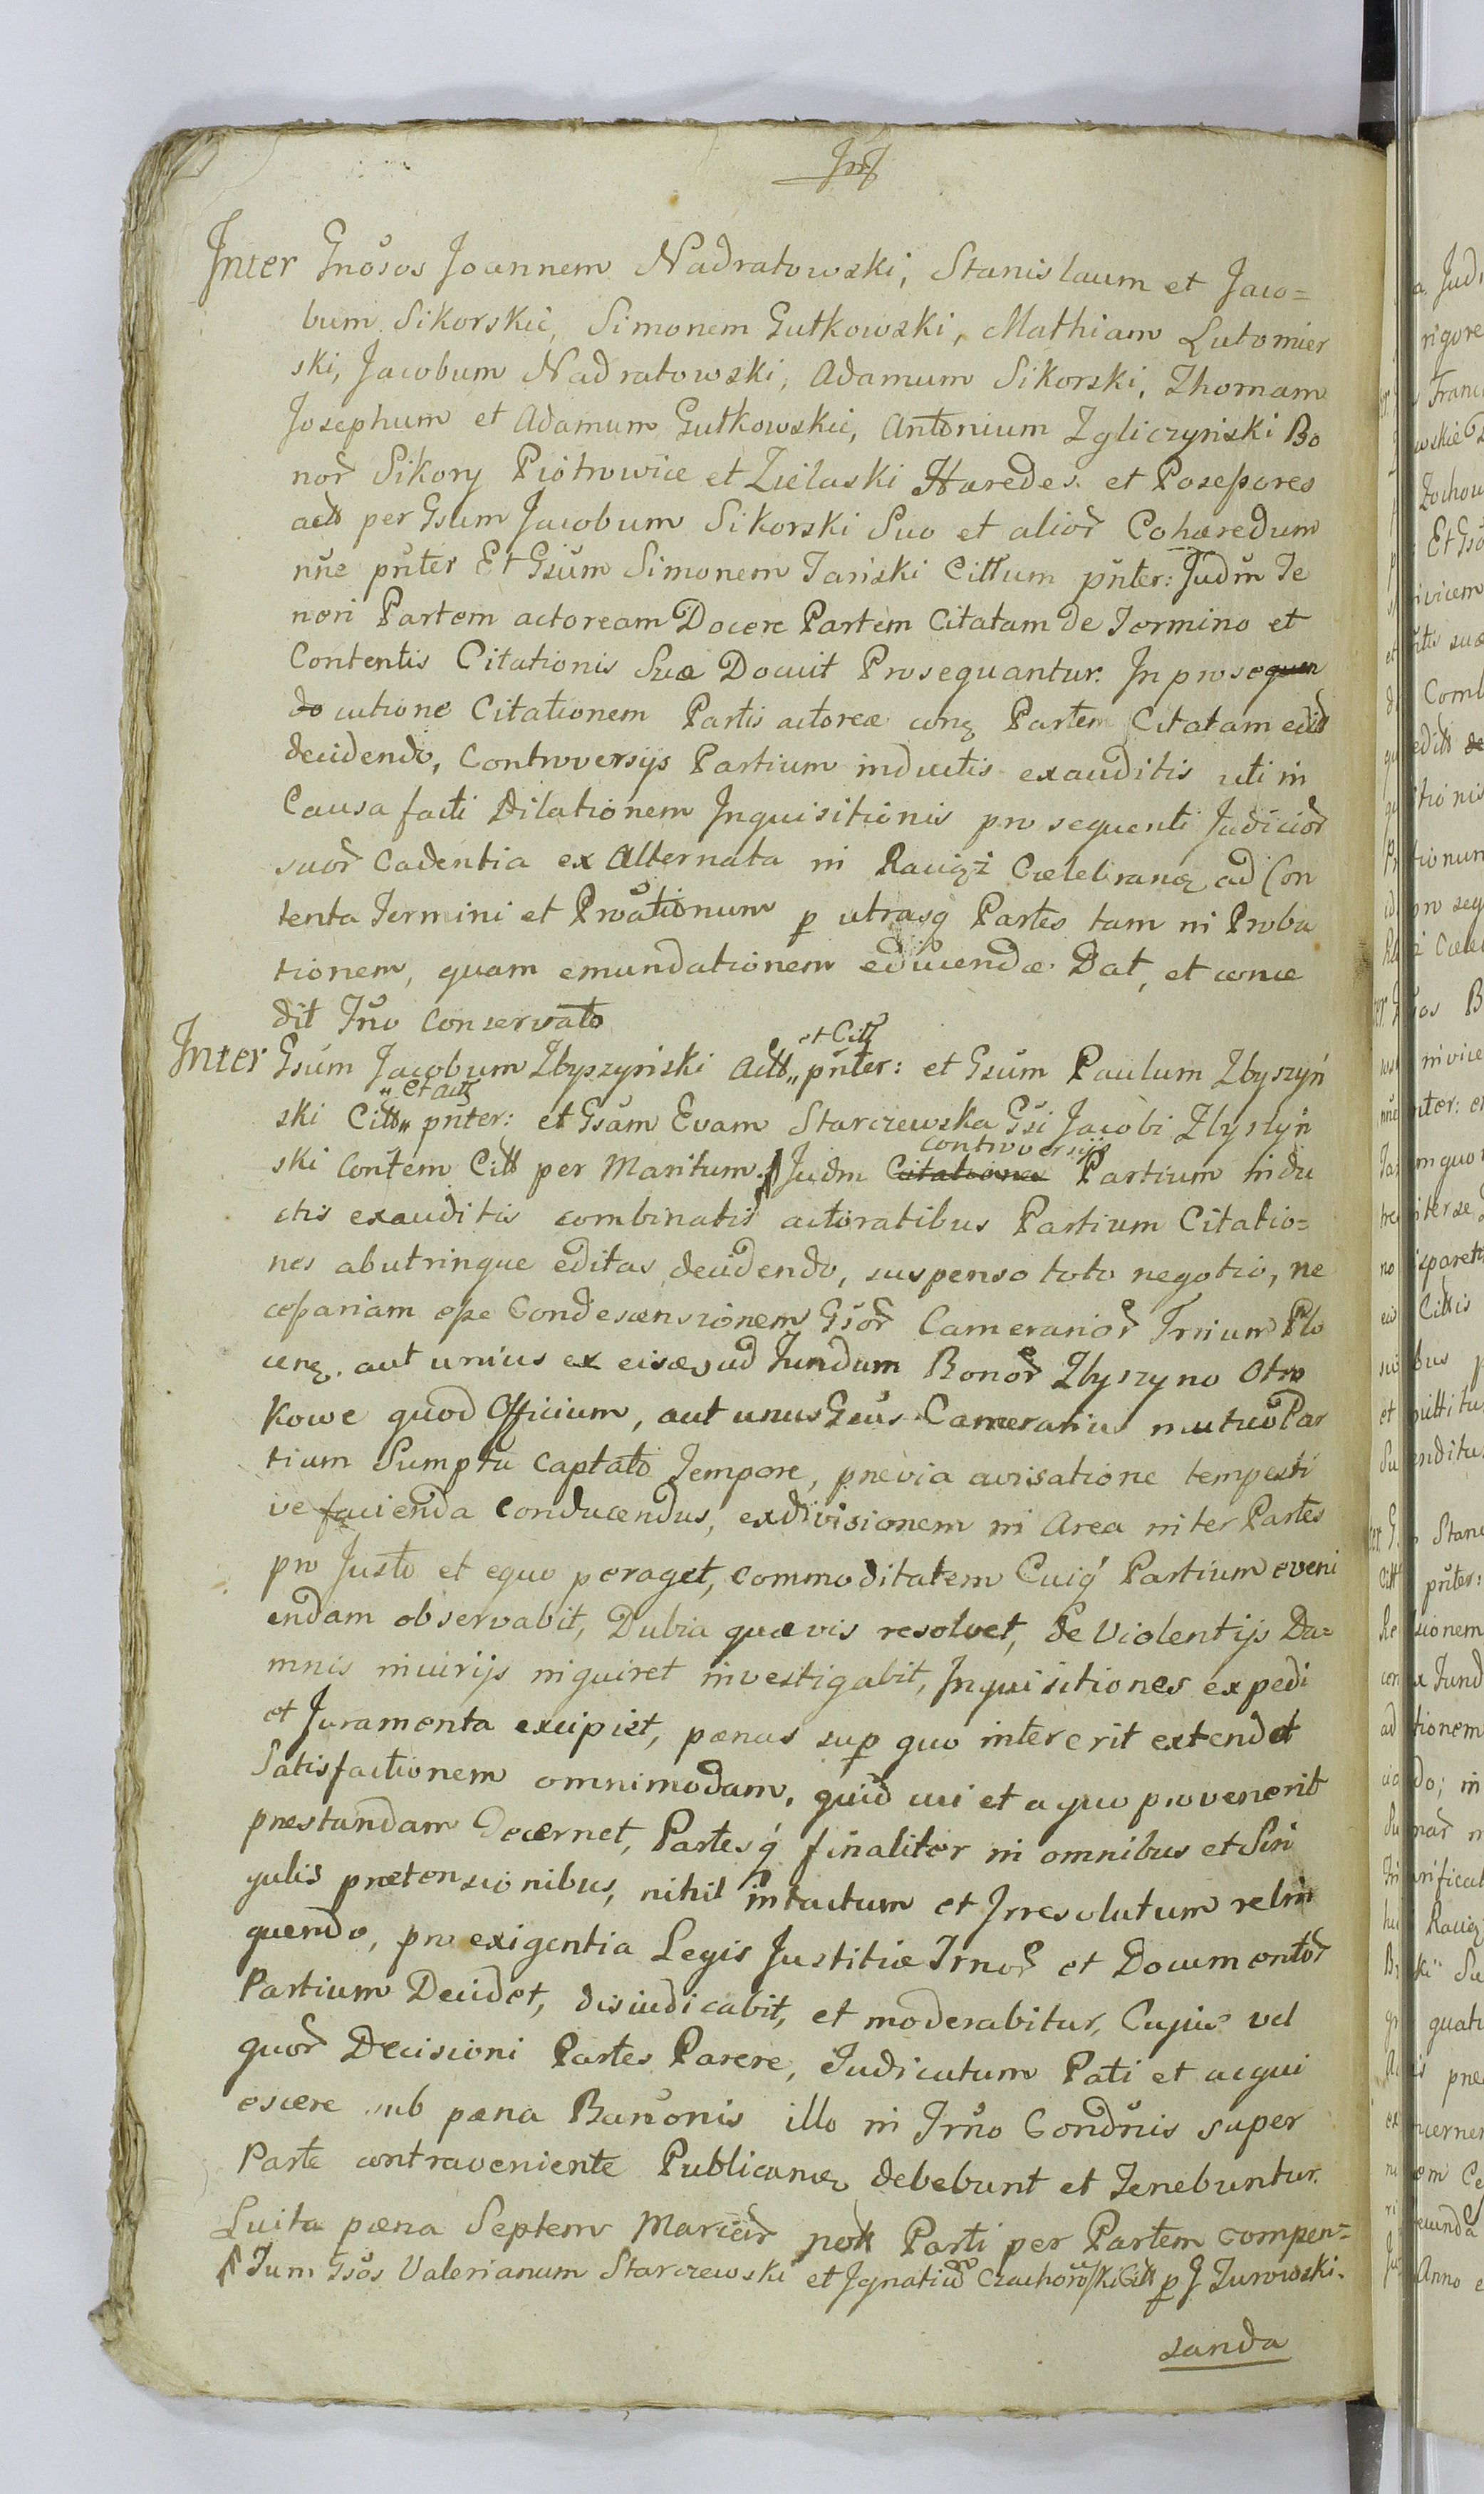 Inter Gnõsos Joannem Nadratowski, Stanislaum et Jaco=
bum Sikorskie, Simonem Gutkowski, Mathiam Lutomier
ski, Jacobum Nadratowski, Adamum Sikorski, Thomam
Josephum et Adamum Gutkowskie, Antonium Zgliczyński Bo
nor Sikory Piotrowice et Zielaski Hæredes et Possessores
per Gsum Jacobum Sikorski Suo et alior Cohæredum
nñe pñter Et Gsũm Simonem Tański Cittum pñter: Judm̃ Te
neri Partem actoream Docere Partem Citatam de Termino et
Contentis Citationis Suæ Docuit Prosequantur. In prosequen
do cutione Citationem Partis actoreæ conq Partem Citatam edid
decidendo, Controversys Partium inductis exauditis uti in
Causa facti Dilationem Inquisitionis pro sequenti Judicior
suor Cadentia ex Alternata in Raciąż Cœlebranq ad Con
tenta Termini et p utrasq Partes tam in Proba
tionem, quam emundationem educendæ Dat, et conce
dit Trñno Conservato
et Citt
Inter Gsũm Jacobum Zbyszyński Actt„ pñter: et Gsũm Paulum Zbyszyń
„et act
ski Citt„ pñter: et Gsãm Evam Starczewska Gsi Jacobi Zbyszyń
controversijs
ski Contem Citt per Maritum. Judm Citationes Partium indu
ctis exauditis combinatis actoratibus Partium Citatio=
nes abutrinque editas decidendo, suspenso toto negotio, ne
cessariam esse Condescensionem Gsor Camerarior Trrium Plo
cenq. aut unius ex eisæs ad Fundum Bonor Zbyszyno Otro
kowe quod Officium, aut unus Gsus Camerarius mutuo Par
tium Sumptu captato Tempore, prævia avisatione tempesti
ive facienda conducendus, exdivisionem in Area inter Partes
pro Justo et equo peraget, commoditatem Cuiq Partium eveni
endam observabit, Dubia quævis resolvet, de Violentijs Da=
mnis iniurijs inquiret investigabit, Inquisitiones expedi
et Juramenta excipiet, pænas sup quo intererit extendet
Satisfactionem omnimodam, quid cui et a quo provenerit
prestandam Decernet, Partesq finaliter in omnibus et Sin
gulis prætensionibus, nihil intactum et Irresolutum relin
quendo, pro exigentia Legis Justitiæ Trnor et Documentor
Partium Decidet, disiudicabit, et moderabitur, Cujus vel
quor Decisioni Partes Parere, Judicatum Pati et acqui
escere sub pæna Banõnis illo in Trño Condñis super
Parte contraveniente Publicanq debebunt et Tenebuntur.
Luita pæna Septem Marcar Parti per Partem compen=
Tum Gsos Valerianum Starczewski et Ignatium Czachorowski Citt p J Zurowski.
sanda